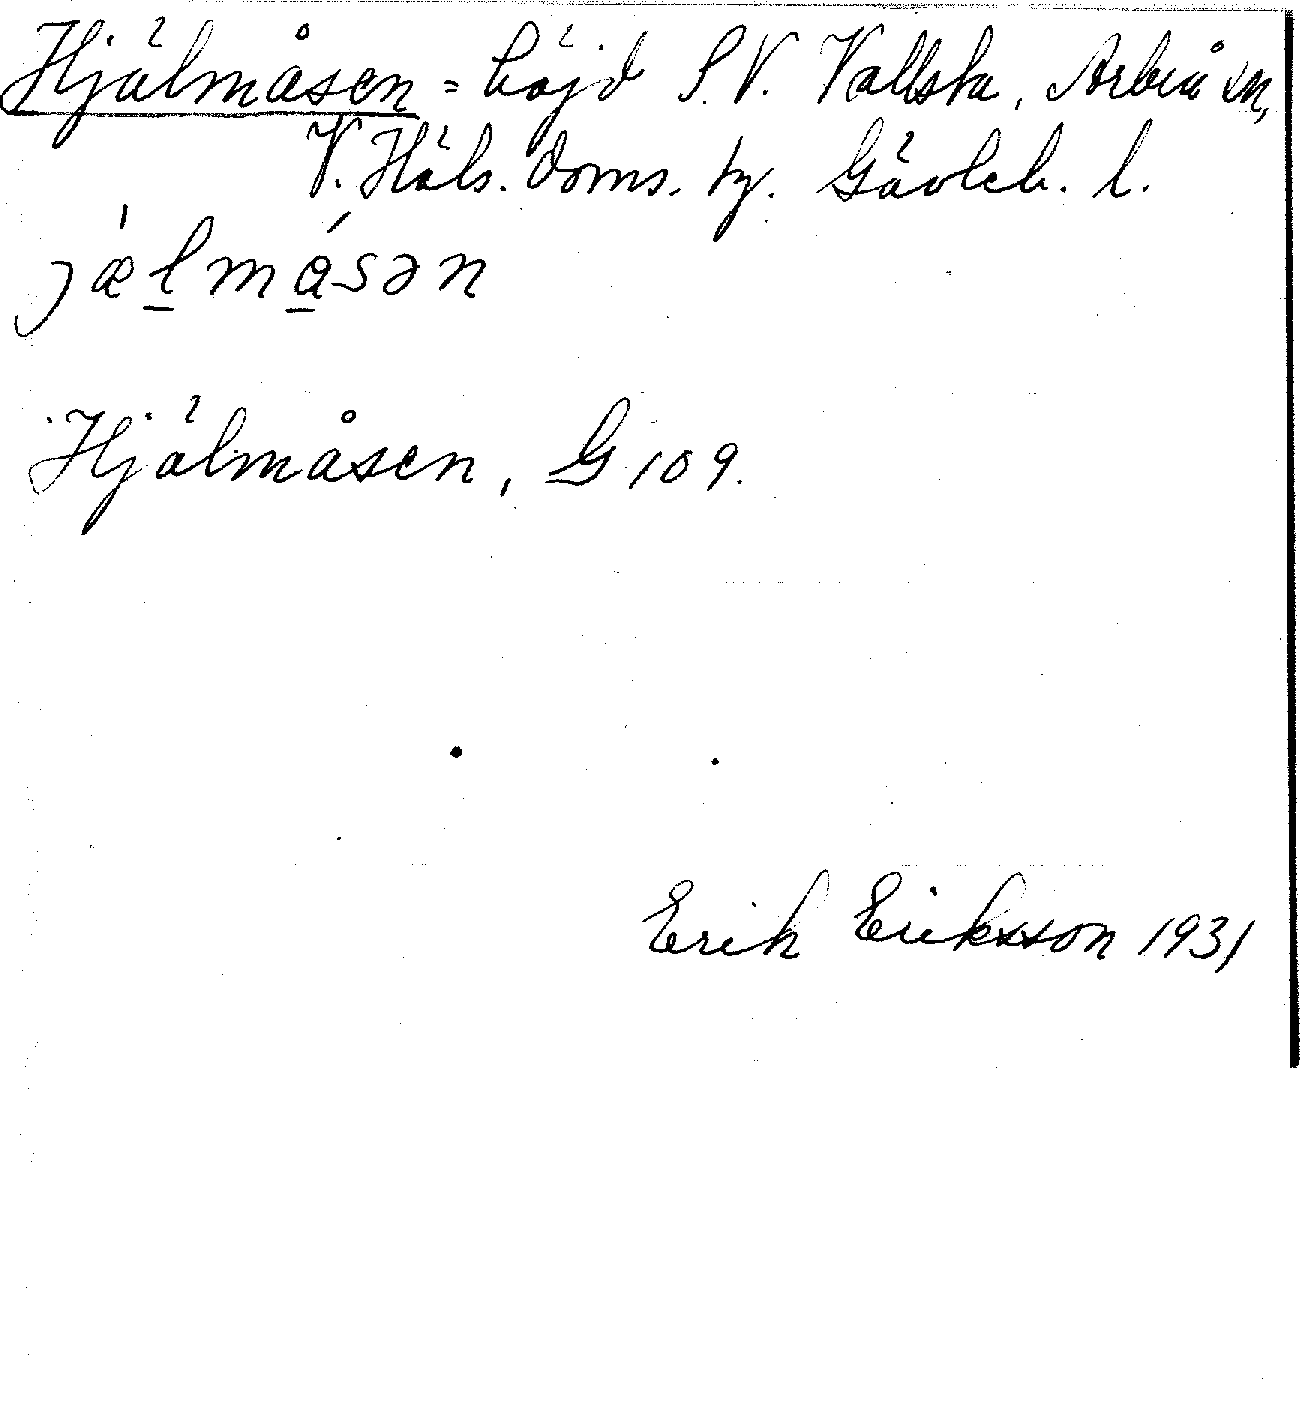 Hjälmåsen = höjd S.V. Vallsta, Arbrå sn,
V. Häls. doms. tg. Gävleb. l.
jǽl̲mǻ̲sən
Hjälmåsen, G 109.
Erik Eriksson 1931